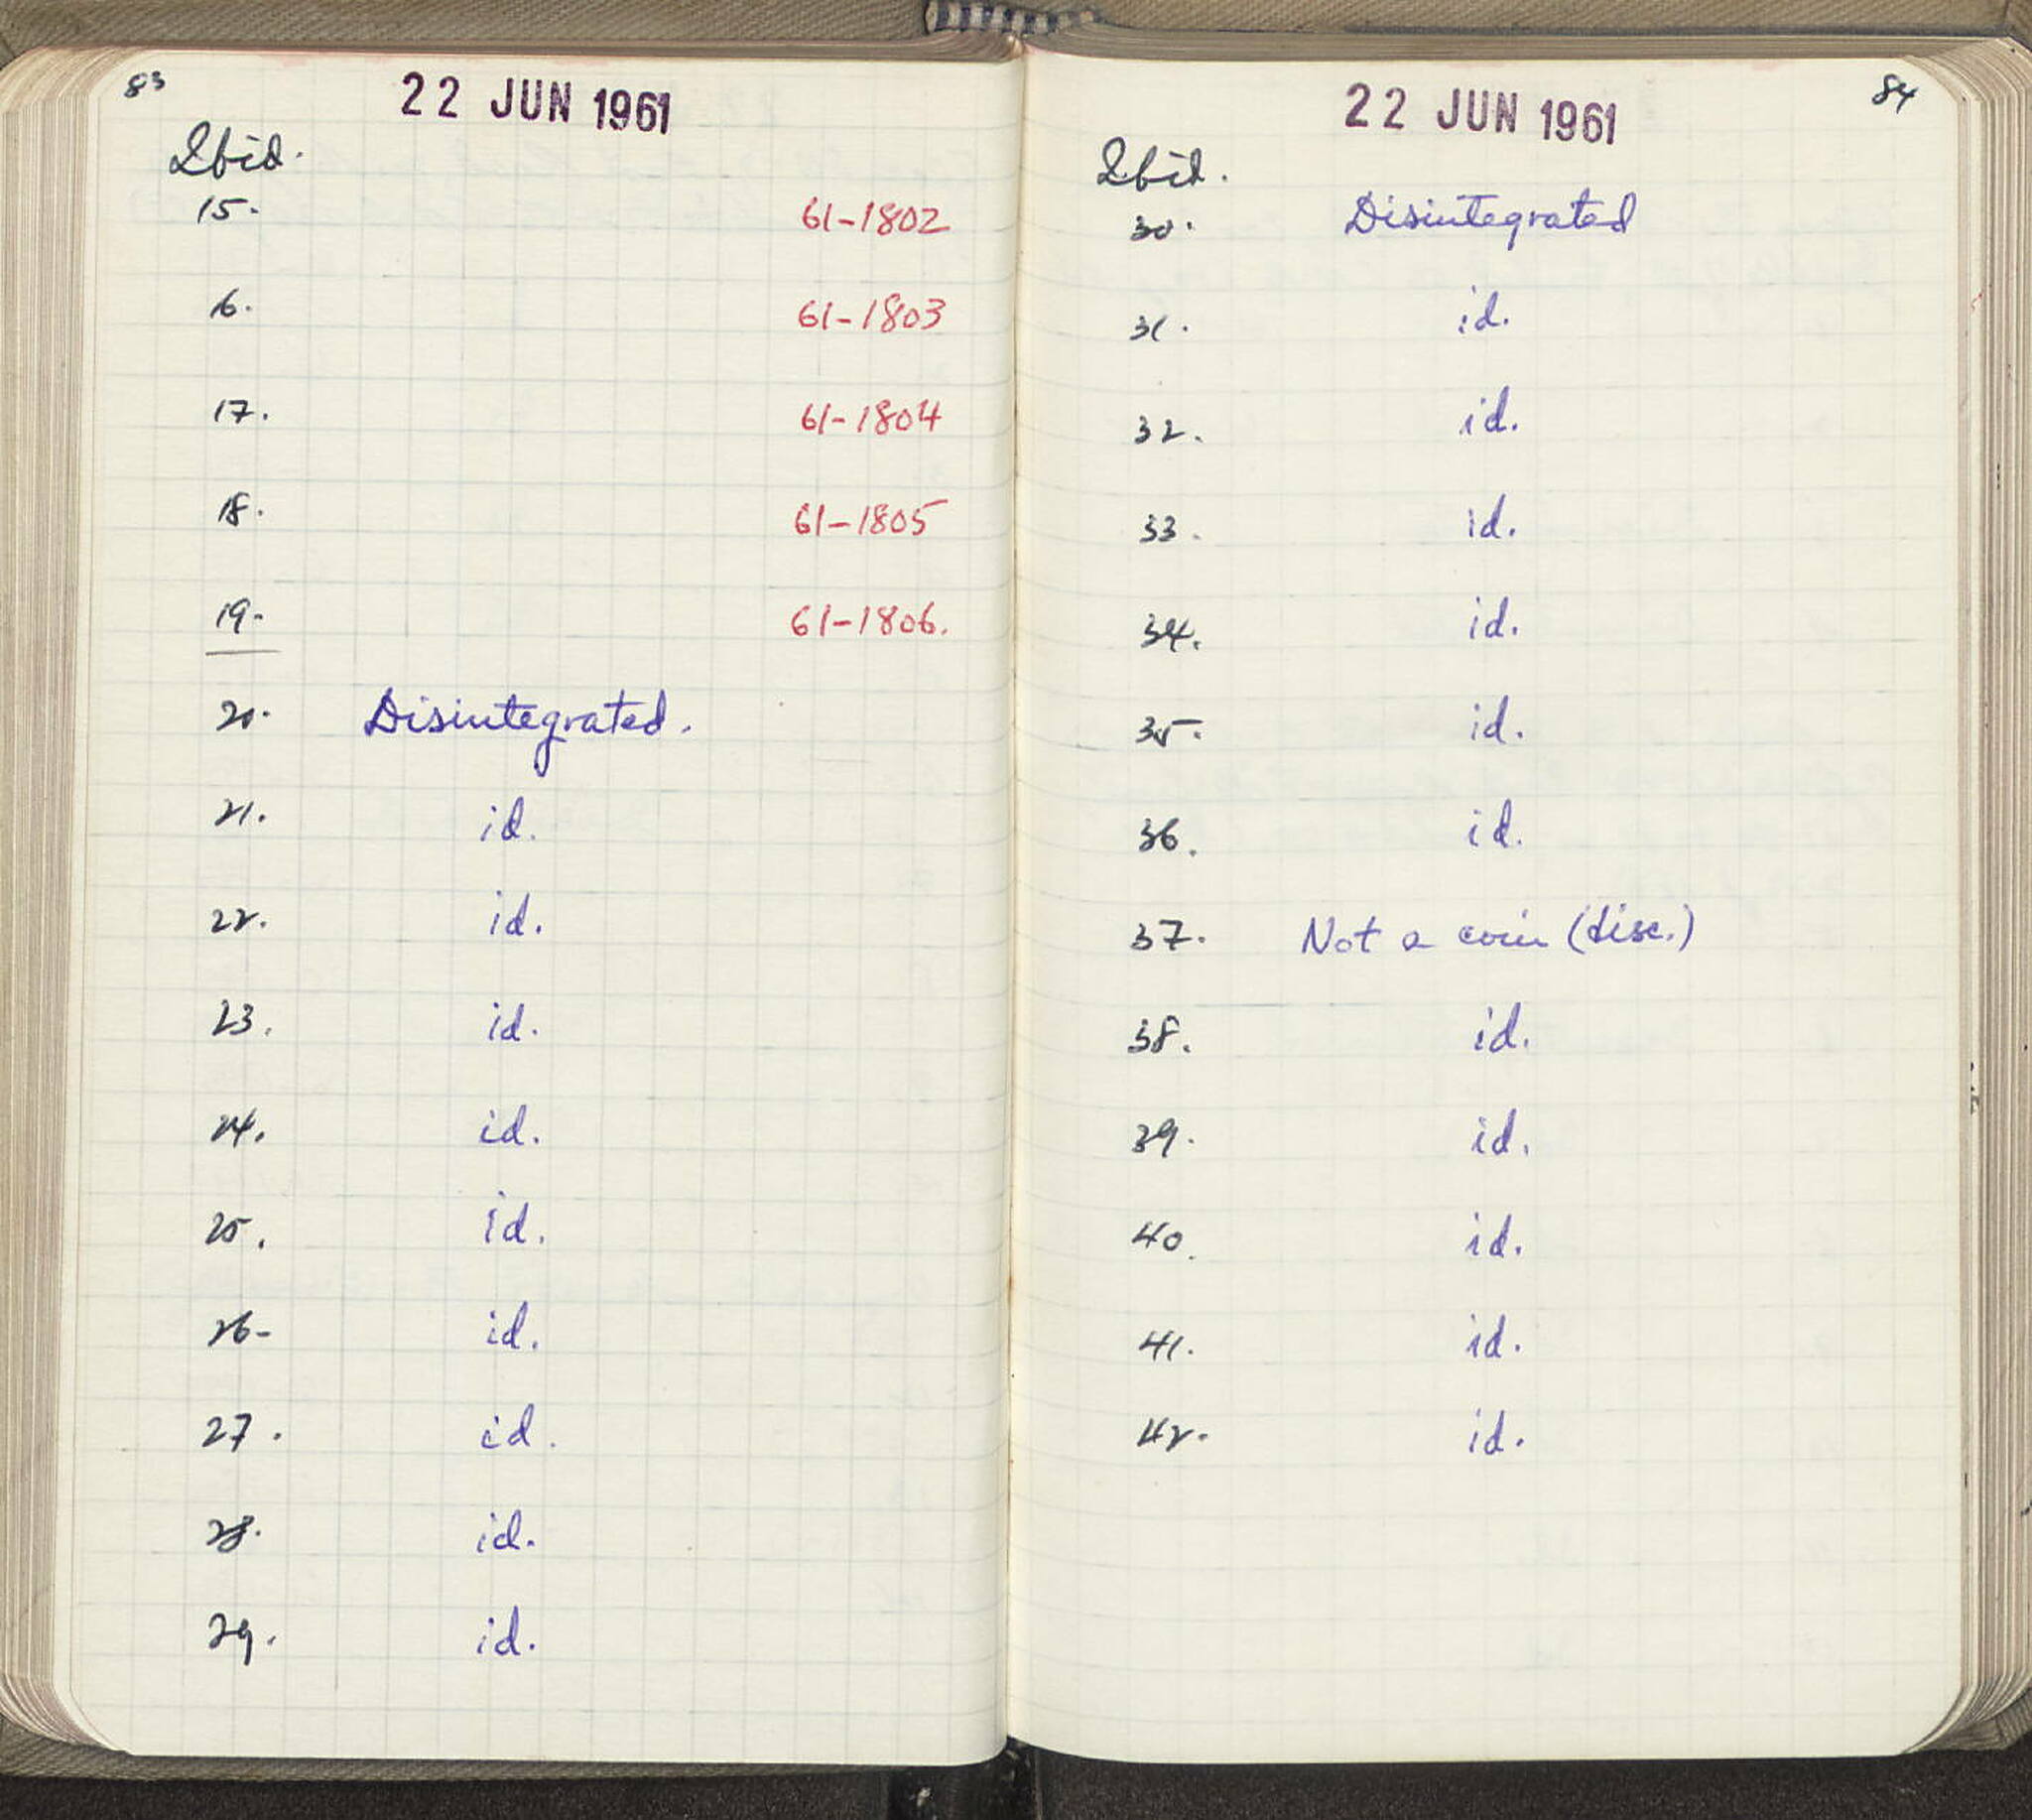 83
22 JUN 1961
Ibid.
15. 61-1802
16. 61-1803
17. 61-1804
18. 61-1805
19. 61-1806.
20. Disintegrated.
21. id.
22. id.
23. id.
24. id.
25. id.
26- id.
27. id.
28. id.
29. id.
84
22 JUN 1961
Ibid.
30. Disintegrated
31. id.
32. id.
33. id.
34. id.
35. id.
36. id.
37. Not a coin (disc.)
38. id.
39. id.
40. id.
41. id.
42. id.